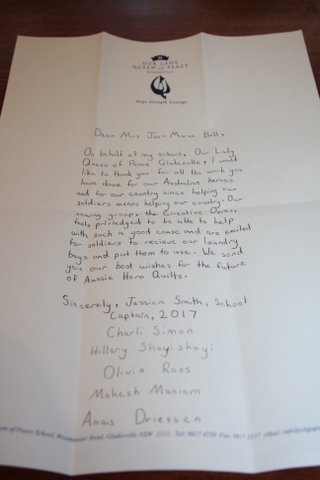 OUR LADY
QUEEN of PEACE
Hope Strength Courage
Dear Mrs Jan-Maree Ball,
On behalf of my school, Our Lady
Queen of Peace Gladesville, I would
like to thank you for all the work you
have done for our Australian heroes
and for our country since helping our
soldiers means helping our country. Our
sewing group, the Creative Doves,
feels priviledged to be able to help
with such a good cause and are excited
for soldiers to recieve our laundry
bags and put them to use. We send
you our best wishes for the future
of Aussie Hero Quilts.
Sincerely, Jessica Smith, School
Captain, 2017
Charli Simon
Hillary Shayishayi
Olivia Ross
Mahesh Maniam
Anais Driessen
een of Peace School, Westminster Road, Gladesville NSW 2111. Tel: 9817 Fax: 9817 2517 eMail: